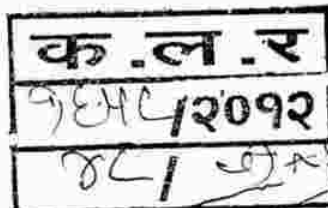 क.ल.र
१६५८/२०१२
४८/